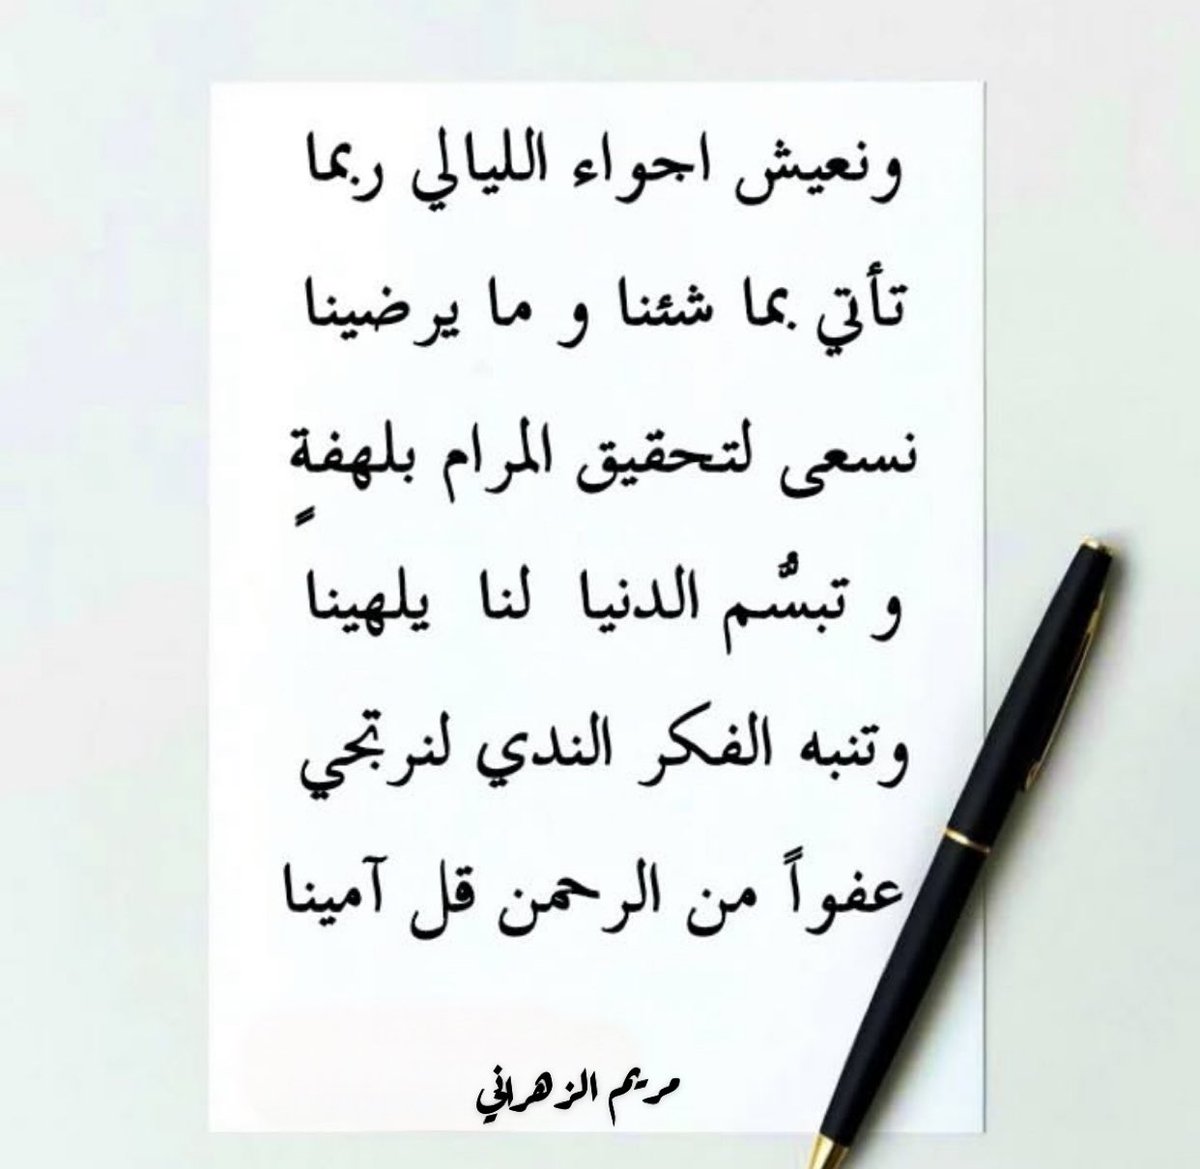 ونعيش اجواء الليالي ربما
تأتي بما شئنا و ما يرضينا
نسعى لتحقيق المرام بلهفةٍ
و تبسُّم الدنيا لنا يلهينا
وتنبه الفكر الندي لنرتجي
عفواً من الرحمن قل آمينا
مريم الزهراني